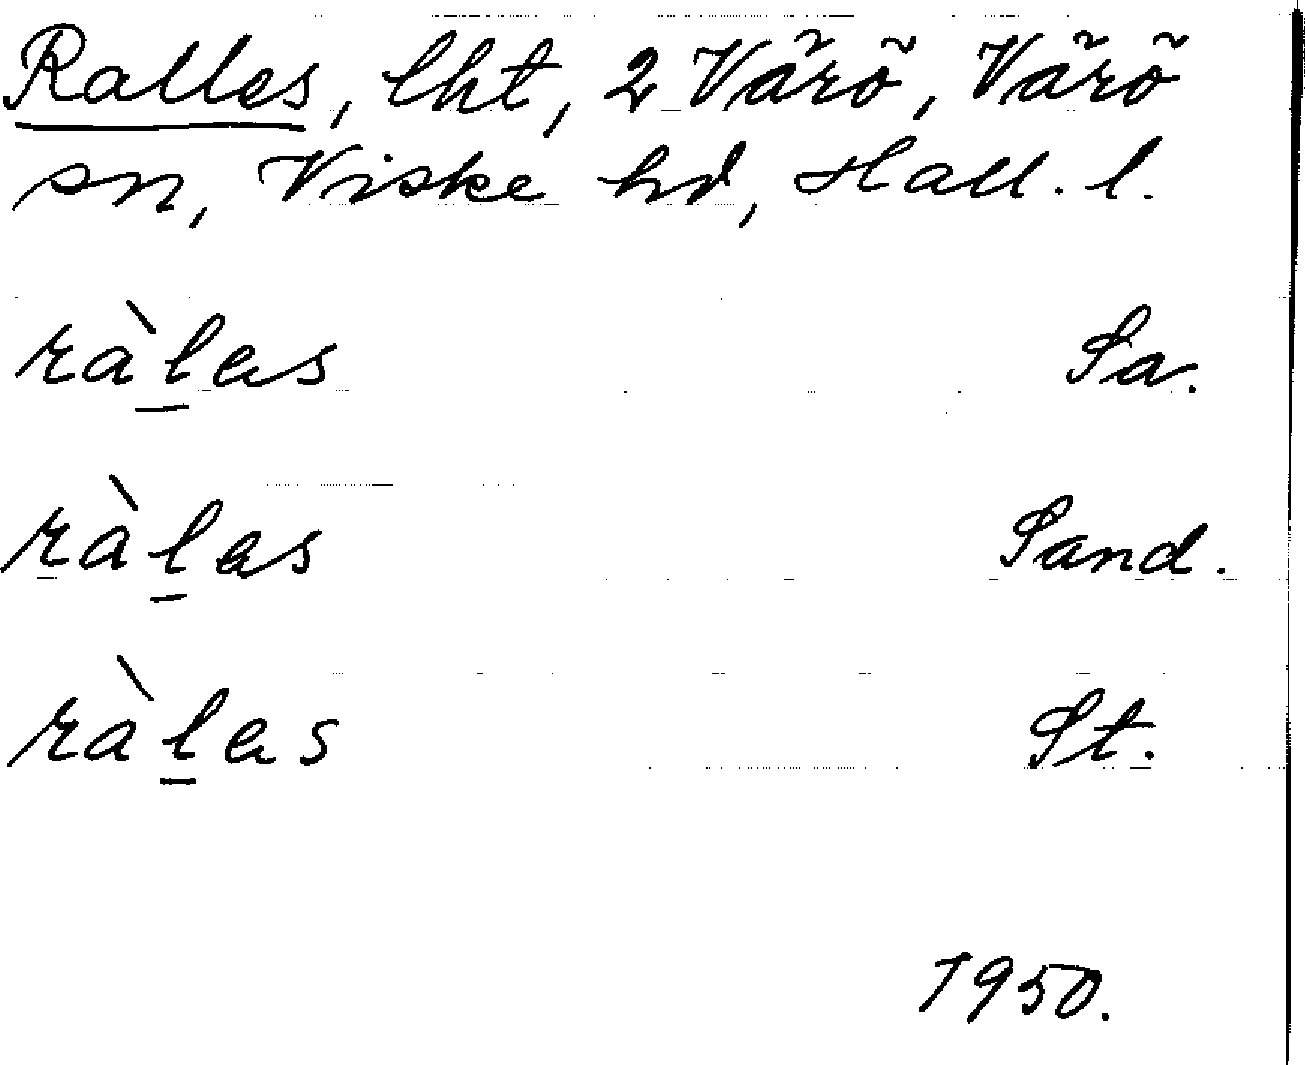 Ralles, lht, 2 Värö, Värö
sn, Viske hd, Hall. l.
ràl̲as Sa.
ràl̲as Sand.
ràl̲as St.
1950.